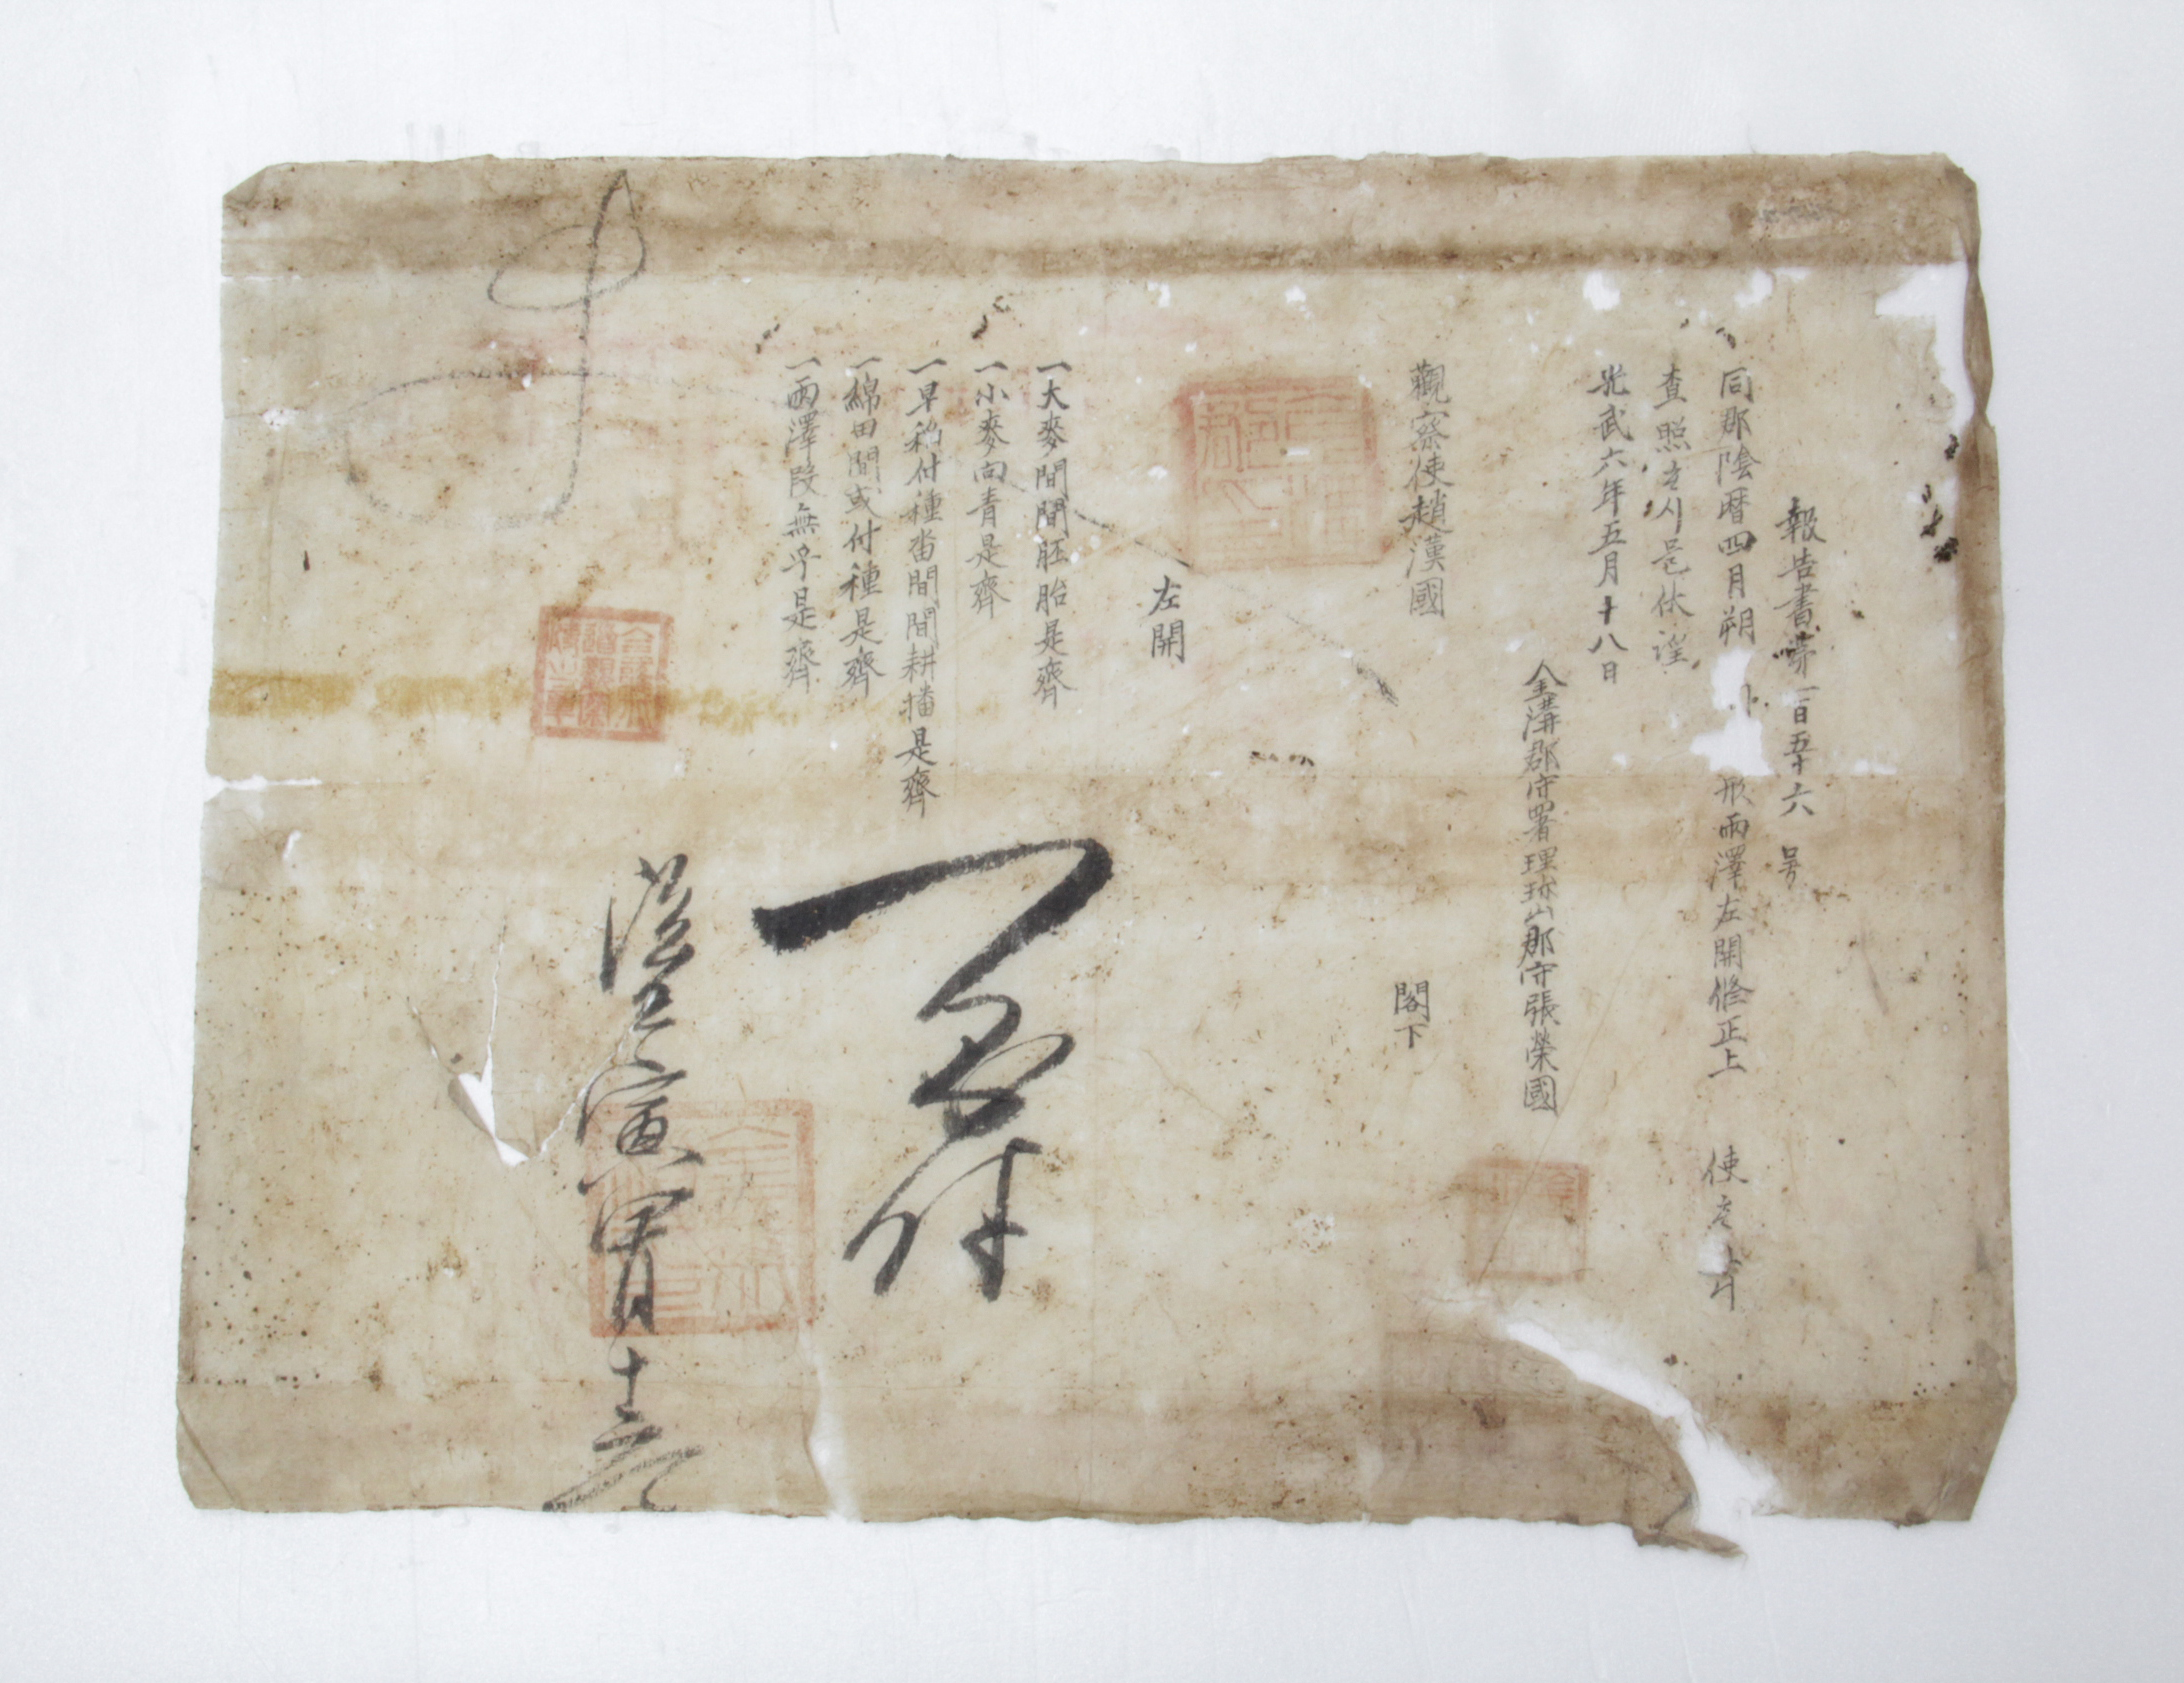 報告書第一百五十六号
同郡陰曆四月朔 形雨澤左開修正上 使
査照 休
光武六年五月十八日
金溝郡守署理珍山郡守張榮國
觀察使趙漢國 閣下
左開
一大麥間間胚胎是齊
一小麥向青是齊
一早稻付種畓間間耕播是齊
一綿田間或付種是齊
一雨澤段無乎是齊
到付
壬寅四月十六